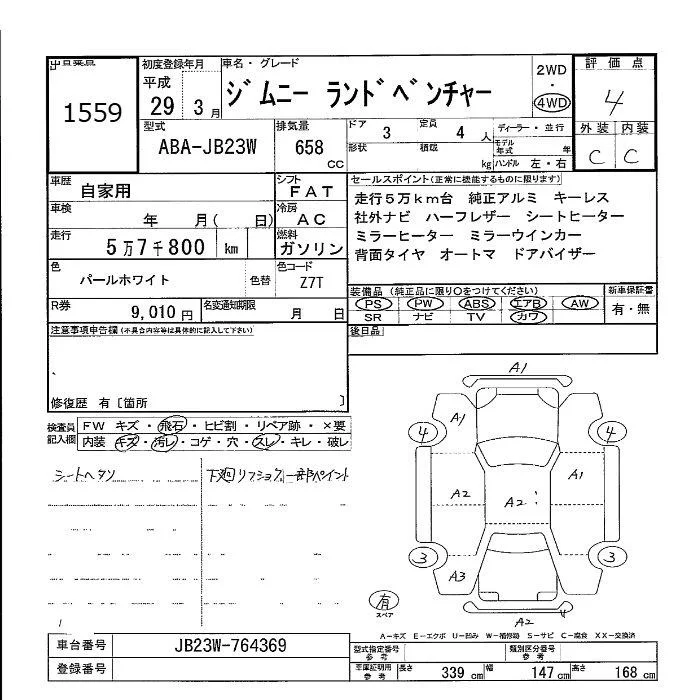 出品番号 初度登録年月 車名・グレード 評価点
1559 平成 29 3月 ジムニー ランドベンチャー 2WD・4WD 4
型式 排気量 ドア 3 定員 4 人 ディーラー・並行 外装 内装
ABA-JB23W 658 CC 形状 積載 kg モデル年式 年 ハンドル 左・右 C C
車歴 自家用 シフト FAT セールスポイント(正常に機能するものに限ります)
車検 年 月( 日) 冷房 AC 走行5万km台 純正アルミ キーレス
社外ナビ ハーフレザー シートヒーター
走行 5万7千800 km 燃料 ガソリン ミラーヒーター ミラーウインカー
背面タイヤ オートマ ドアバイザー
色 パールホワイト 色替 色コード Z7T
装備品(純正品に限り○をつけてください) 新車保証書
PS PW ABS エアB AW 有・無
R券 9,010円 名変通知期限 月 日 SR ナビ TV カワ
注意事項申告欄(不具合内容等は具体的に記入して下さい) 後日品
修復歴 有〔箇所 〕
検査員記入欄 FW キズ・飛石・ヒビ割・リペア跡・×要
内装 キズ・汚レ・コゲ・穴・スレ・キレ・破レ
シートヘタリ 下廻リフョック一部ペイント
A1
A1
4 4
A2 A2 A1
3 3
A3
有 スペア
A2
A-キズ E-エクボ U-凹み W-補修跡 S-サビ C-腐食 XX-交換済
車台番号 JB23W-764369 型式指定番号 参考 類別区分番号 参考
登録番号 車庫証明用 参考 長さ 339 cm 幅 147 cm 高さ 168 cm